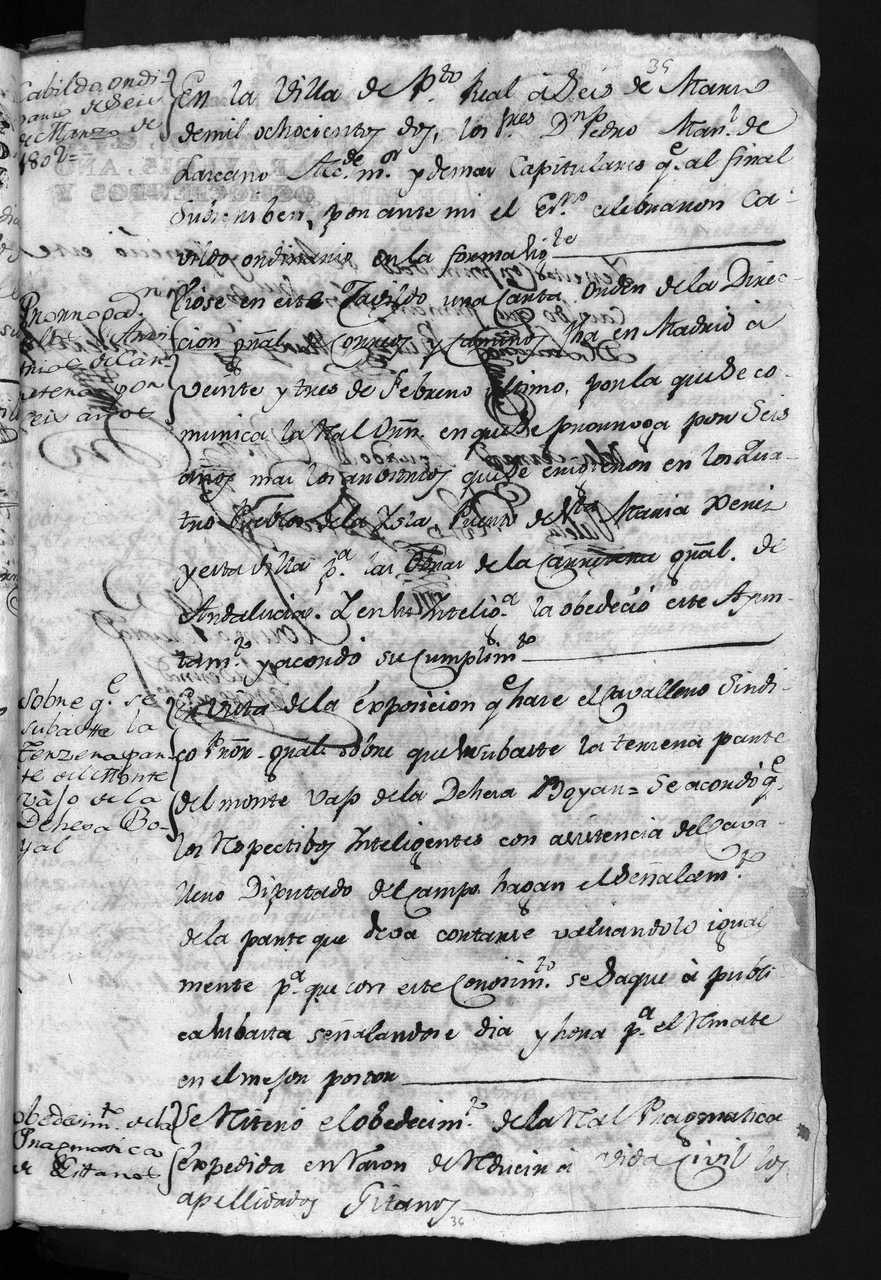 35
Cabildo ordi-
nario de Seis
de Marzo de
1802=
En la Villa de Pto. Real à Seis de Marzo
de mil ochocientos dos, los Sres. Dn. Pedro Man.l de
Lazcano Alc.de m.or y demas Capitulares q.e al final
Subscriben, por ante mi el Es.no celebraron Ca-
vildo ordinario en la forma sig.te
Prorroga de
Arvi-
trios de Car-
retera por
seis años
Leiose en este Cavildo una Carta Orden de la Direc-
cion gñal de Correos y Caminos fha en Madrid à
veinte y tres de Febrero ultimo, por la que se co-
munica la Ral Orñ. en que se prorroga por Seis
años mas los arvitrios que se impusieron en los qua-
tro Pueblos de la Isla, Puerto de Sta. Maria Xerez
y esta Villa p.a las Obras de la Carretera gñal. de
Andalucia. Y en su intelig.a la obedeció este Ayun-
tam.to y acordó su Cumplim.to
Sobre q.e se
subaste la
terzera par-
te del Monte
vajo de la
Dehesa Bo-
yal
En vista de la Exposicion q.e hace el Cavallero Sindi-
co Pror. gñal. sobre que se subaste la tercera parte
del monte vajo de la Dehesa Boyar= Se acordó q.e
los respectibos Inteligentes con asistencia del Cava-
llero Diputado del Campo hagan el señalam.to
de la parte que deva cortarse valuandolo igual
mente p.a que con este Conosim.to se saque à públi
ca subasta señalandose dia y hora p.a el Remate
en el mejor postor
obedecim.to de la
Pragmatica
de Gitanos
Se reiteró el obedecim.to de la Real Pragmatica
expedida en razon de reducir à vida Civil los
apellidados Gitanos
36